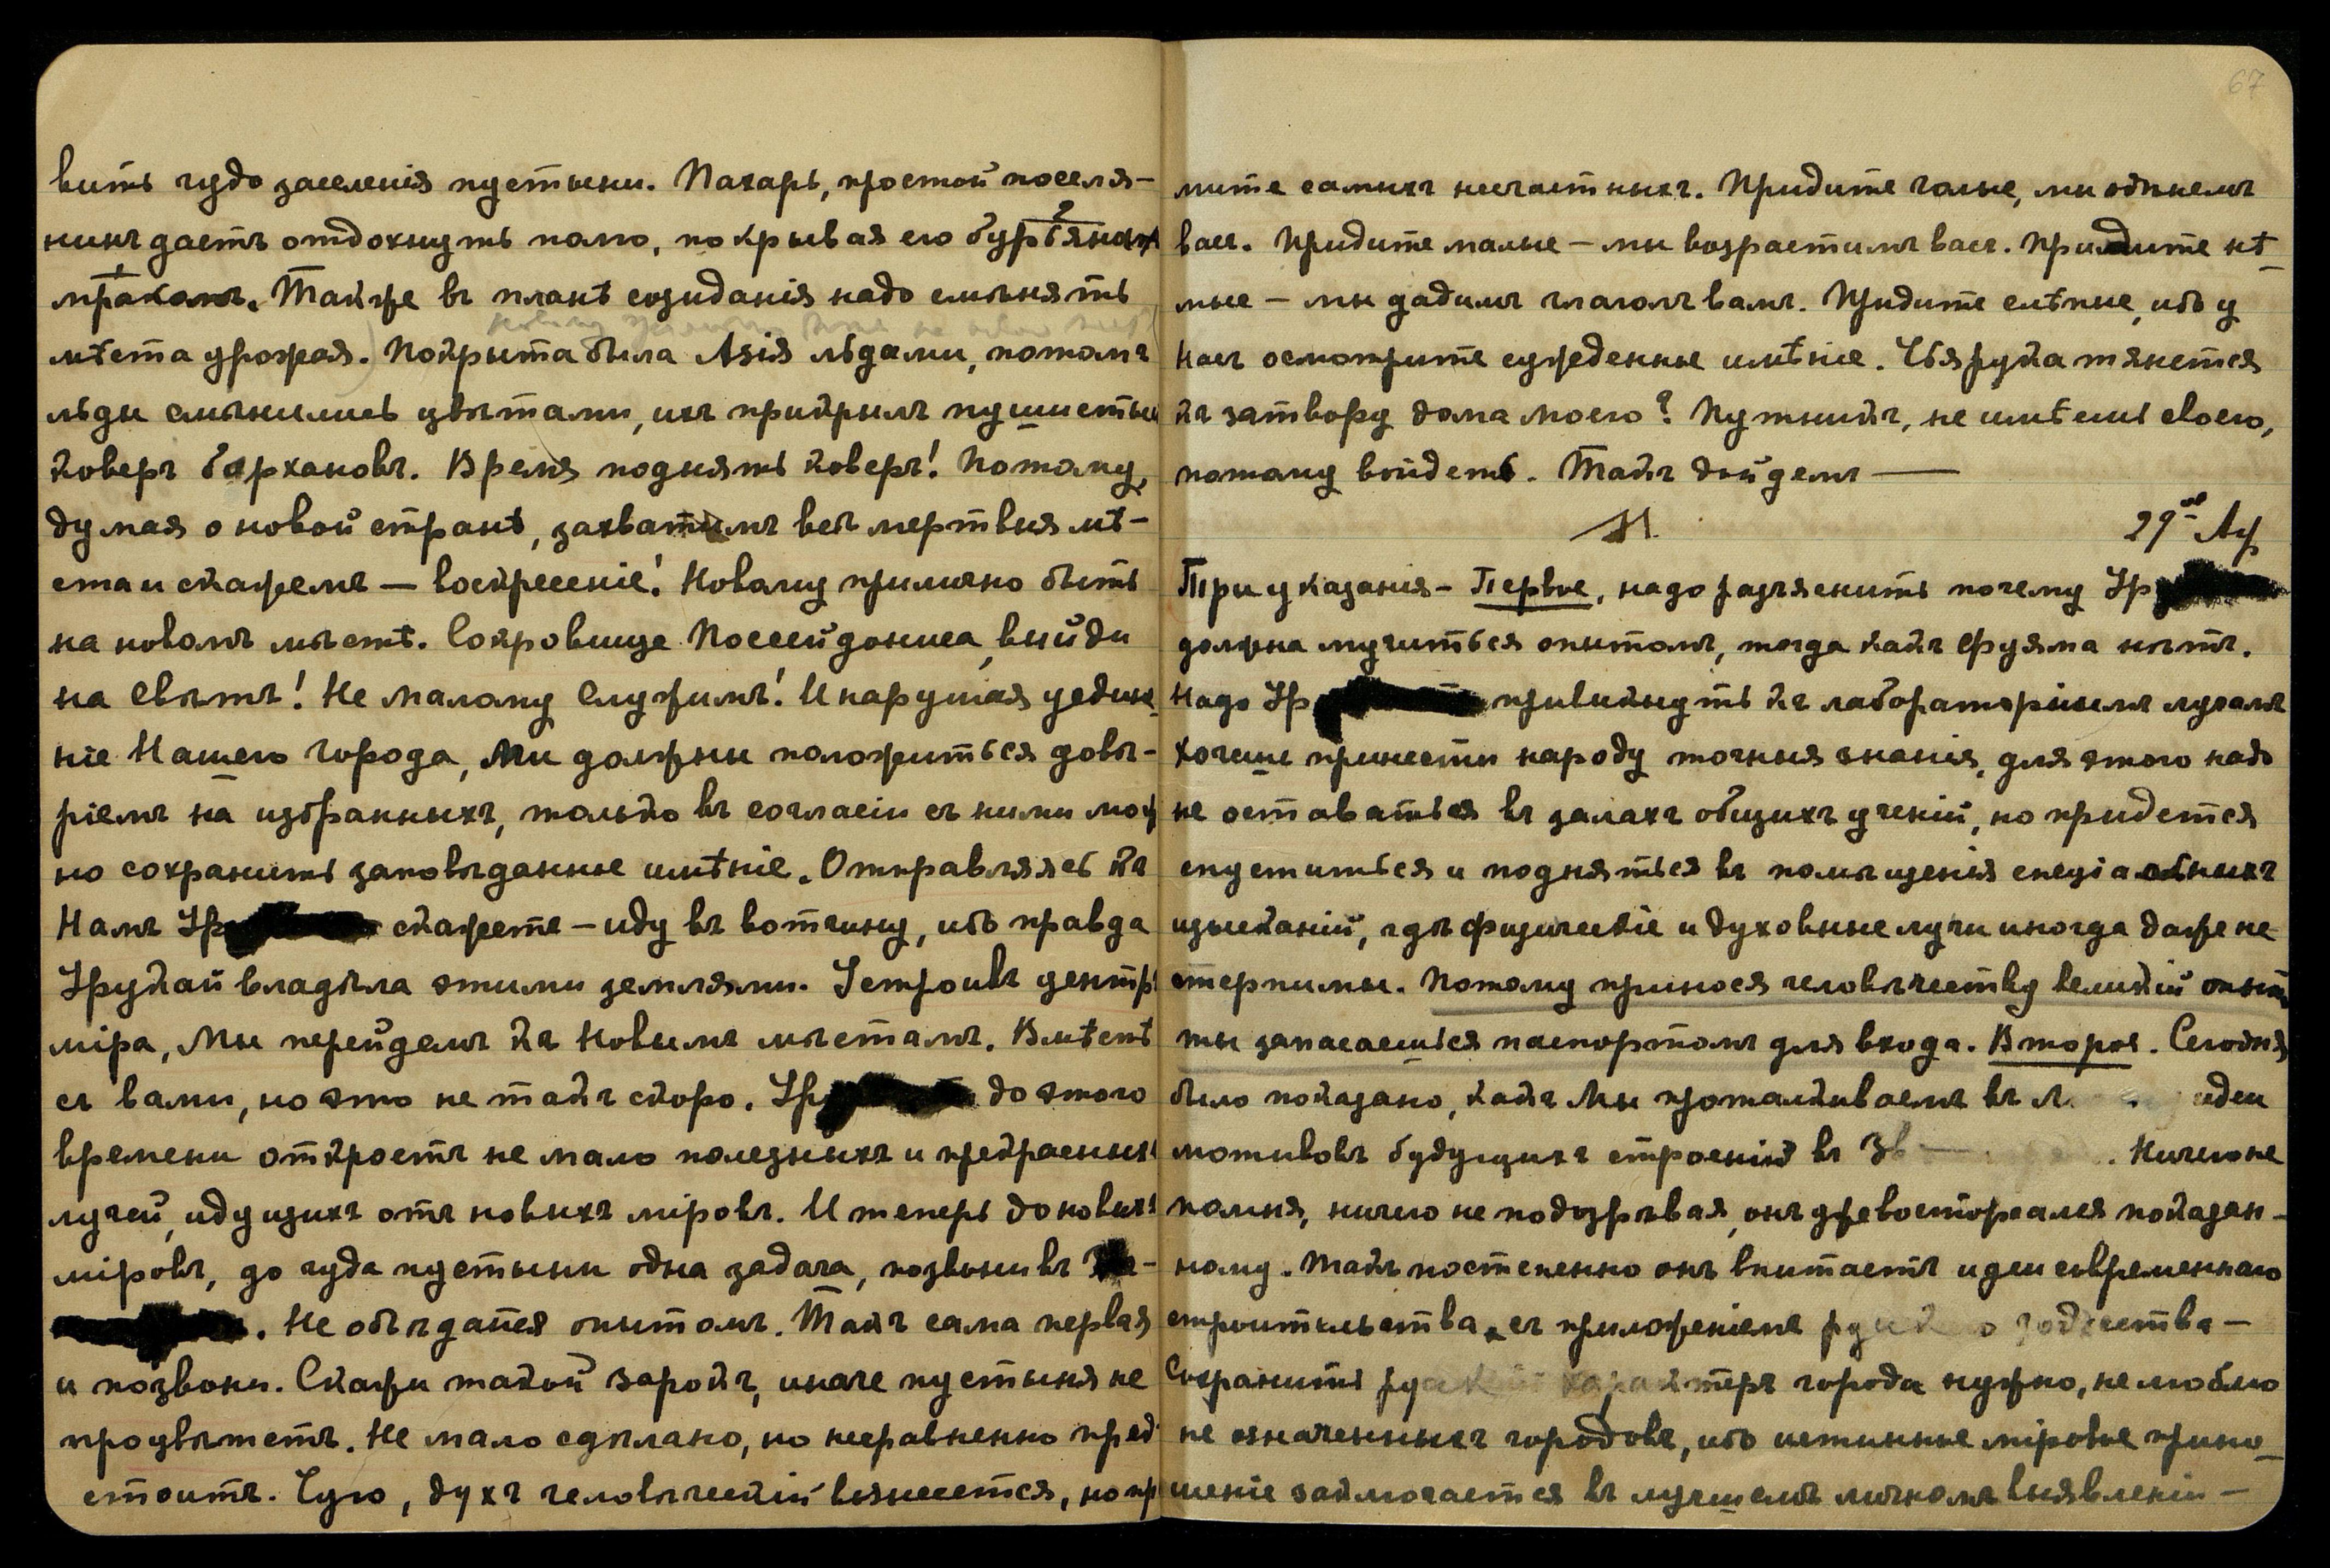 вить чудо заселенія пустыни. Пахарь, простой поселя-
нинъ даетъ отдохнуть полю, покрывая его бурьяномъ
мракомъ. Также въ планѣ созиданія надо смѣнять
мѣста урожая. Покрыта была Азія льдами, потомъ
льды смѣнились цвѣтами, ихъ прикрылъ пушистый
коверъ бархановъ. Время поднять коверъ! Потому,
думая о новой странѣ, захватимъ всѣ мертвыя мѣ-
ста и скажемъ — воскресеніе! Новому прилично быть
на новомъ мѣстѣ. Сокровище Поссейдониса, выйди
на Свѣтъ! Не малому служимъ! И нарушая уедине-
ніе Нашего Города, Мы должны положиться довѣ-
ріемъ на избранныхъ, только въ согласіи съ ними мож
но сохранить заповѣданное имѣніе. Отправляясь къ
Намъ Ур скажетъ — иду въ вотчину, ибо правда
Урукай владѣла этими землями. Устроивъ центръ
міра, Мы перейдемъ къ Новымъ мѣстамъ. Вмѣстѣ
съ вами, но это не такъ скоро. Ур до этого
времени откроетъ не мало полезныхъ и прекрасныхъ
лучей, идущихъ отъ новыхъ міровъ. И теперь до новыхъ
міровъ, до чуда пустыни одна задача, позвони въ
. Не объѣдайся опытомъ. Такъ сама первая
и позвони. Скажи такой зарокъ, иначе пустыня не
процвѣтетъ. Не мало сдѣлано, но несравненно пред
стоитъ. Чую, духъ человѣческій вознесется, но пр
67
мите самыхъ несчастныхъ. Придите голые, мы одѣнемъ
васъ. Придите малые — мы возрастимъ васъ. Придите нѣ-
мые — мы дадимъ глаголъ вамъ. Придите слѣпые, ибо у
насъ осмотрите сужденное имѣніе. Чья рука тянется
къ затвору дома моего? Путникъ, не имѣешь своего,
потому войдешь. Такъ дойдемъ —
М 29ое Ап
Три указанія — Первое, надо разъяснить почему Ур
должна мучиться опытомъ, тогда какъ Фуяма нѣтъ.
Надо Ур привыкнуть къ лабораторнымъ лучамъ
Хочешь принести народу точныя знанія, для этого надо
не оставаться въ залахъ общихъ ученій, но придется
спуститься и подняться въ помѣщенія спеціальныхъ
изысканій, гдѣ физическіе и духовные лучи иногда даже не
стерпимы. Потому принося человѣчеству великій опытъ
ты запасаешься паспортомъ для входа. Второе. Сегодня
было показано, какъ Мы проталкиваемъ въ идеи
мотивовъ будущихъ строеній въ Зв . Ничего не
помня, ничего не подозрѣвая, онъ ужевосторгался показан-
ному. Такъ постепенно онъ впитаетъ идеи современнаго
строительства, съ приложеніемъ зодчества —
Сохранить характеръ города нужно, не люблю
не означенныхъ городовъ, ибо истинное міровое прино-
шеніе заключается въ лучшемъ личномъ выявленіи —